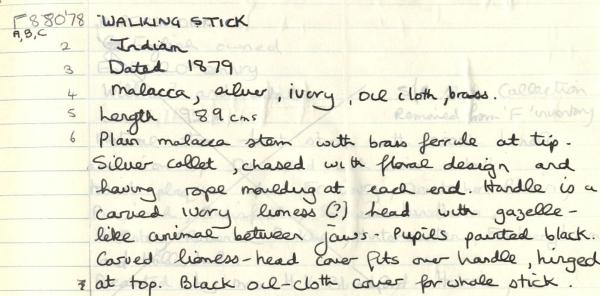 F88078 WALKING STICK
A,B,C
2 Indian
3 Dated 1879
4 Malacca, silver, ivory, oil cloth, brass.
5 Length 89 cms
6 Plain malacca stem with brass ferrule at tip.
Silver collet, chased with floral design and
having rope moulding at each end. Handle is a
carved ivory lioness (?) head with gazelle-
like animal between jaws. Pupils painted black.
Carved lioness-head cover fits over handle, hinged
at top. Black oil-cloth cover for whole stick.
Collection
Removed from 'F' inventory